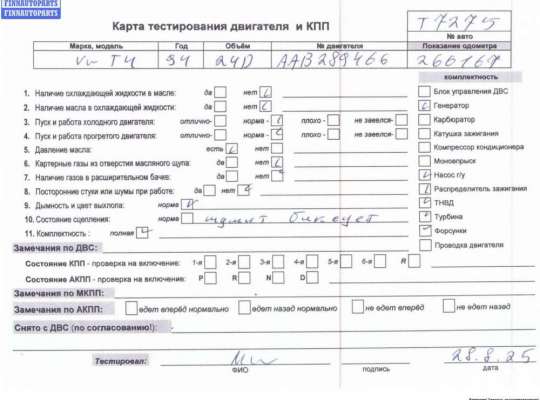 FINNAUTOPARTS
FINNAUTOPARTS
Карта тестирования двигателя и КПП
T7275
№ авто
Марка, модель Год Объём № двигателя Показание одометра
VW T4 94 2,4D AAB289466 266167
комплектность
1. Наличие охлаждающей жидкости в масле: да нет Блок управления ДВС
2. Наличие масла в охлаждающей жидкости: да нет Генератор
3. Пуск и работа холодного двигателя: отлично- норма - плохо - не завелся- Карбюратор
4. Пуск и работа прогретого двигателя: отлично- норма - плохо - не завелся- Катушка зажигания
5. Давление масла: есть нет Компрессор кондиционера
6. Картерные газы из отверстия масляного щупа: да нет Моновпрыск
7. Наличие газов в расширительном бачке: да нет Насос г/у
8. Посторонние стуки или шумы при работе: да нет Распределитель зажигания
9. Дымность и цвет выхлопа: норма ТНВД
10. Состояние сцепления: Турбина
11. Комплектность : полная Форсунки
Замечания по ДВС: Проводка двигателя
Состояние КПП - проверка на включение: 1-я 2-я 3-я 4-я 5-я 6-я R
Состояние АКПП - проверка на включение: P R N D
Замечания по МКПП:
Замечания по АКПП: едет вперёд нормально едет назад нормально не едет вперёд не едет назад
Снято с ДВС (по согласованию!):
Тестировал: 28.8.25
ФИО подпись дата